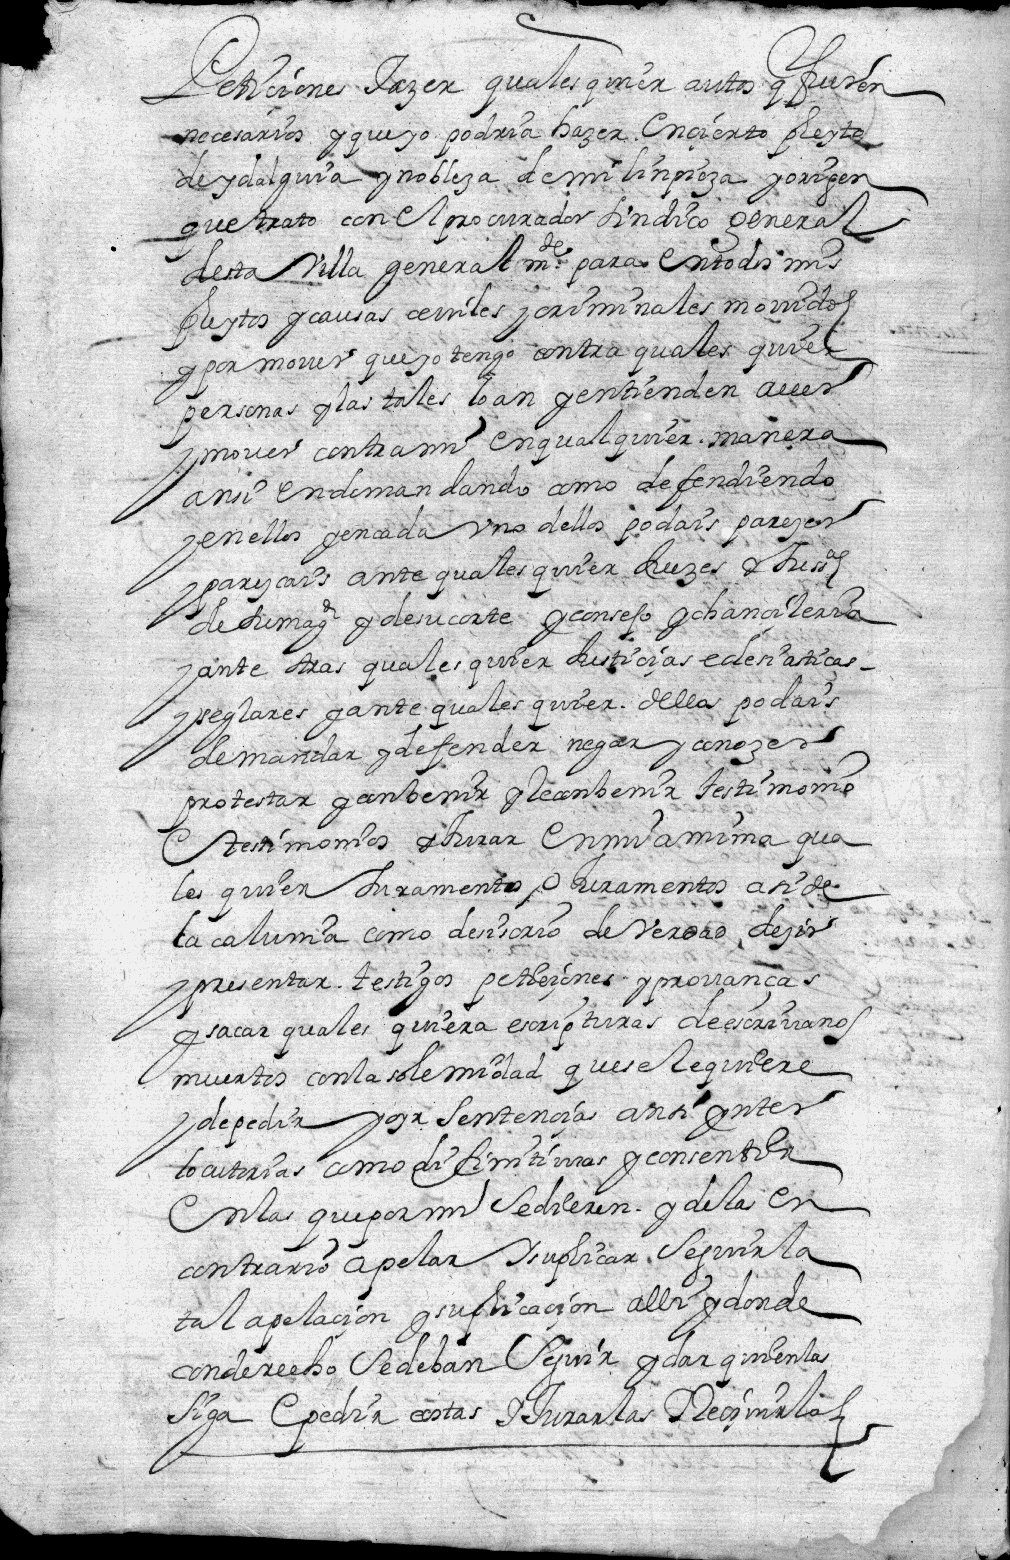 Petiçiones hazer qualesquier autos q fueren
necesarios y que yo podria hazer En çierto pleyto
de ydalguia y nobleza de mi linpieza y orijen
que trato con El procurador sindico general
desta Villa general mᵗᵉ para En todos mis
pleytos y causas ceuiles y criminales mouidos
y por mouer que yo tengo contra quales quier
personas y las tales lo an y entienden auer
y mouer contra mi En qual quier manera
ansi En demandando como defendiendo
y en ellos y en cada Vno dellos podais pareçer
y parezcais ante quales quier Juezes & Jussᵃˢ
de su magᵈ y de su corte y consejo y chancilleria
y ante otras quales quier Justiçias eclesiasticas
y seglares y ante quales quier dellas podais
demandar y defender negar y conozer
protestar y conbenir y Reconbenir testimonio
E testimonios & Jurar En mi anima qua
les quier Juramento o Juramentos asi de
la calunia como desisorio de Verdad dezir
y presentar testigos petiçiones y prouanças
y sacar quales quiera escripturas de escriuanos
muertos con la solemnidad que se Requiere
y de pedir y oyr Sentençias ansi ynter
locutorias como difinitiuas y consentir
En las que por mi Se dieren y de las En
contrario apelar & suplicar Seguir la
tal apelaçion y suplicaçion alli y donde
con derecho Se deban Seguir y dar quien las
siga E pedir costas & Jurarlas Reçiuirlas